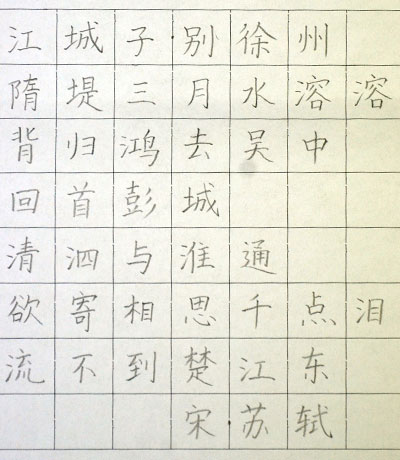 江城子·别徐州
隋堤三月水溶溶
背归鸿去吴中
回首彭城
清泗与淮通
欲寄相思千点泪
流不到楚江东
宋·苏轼